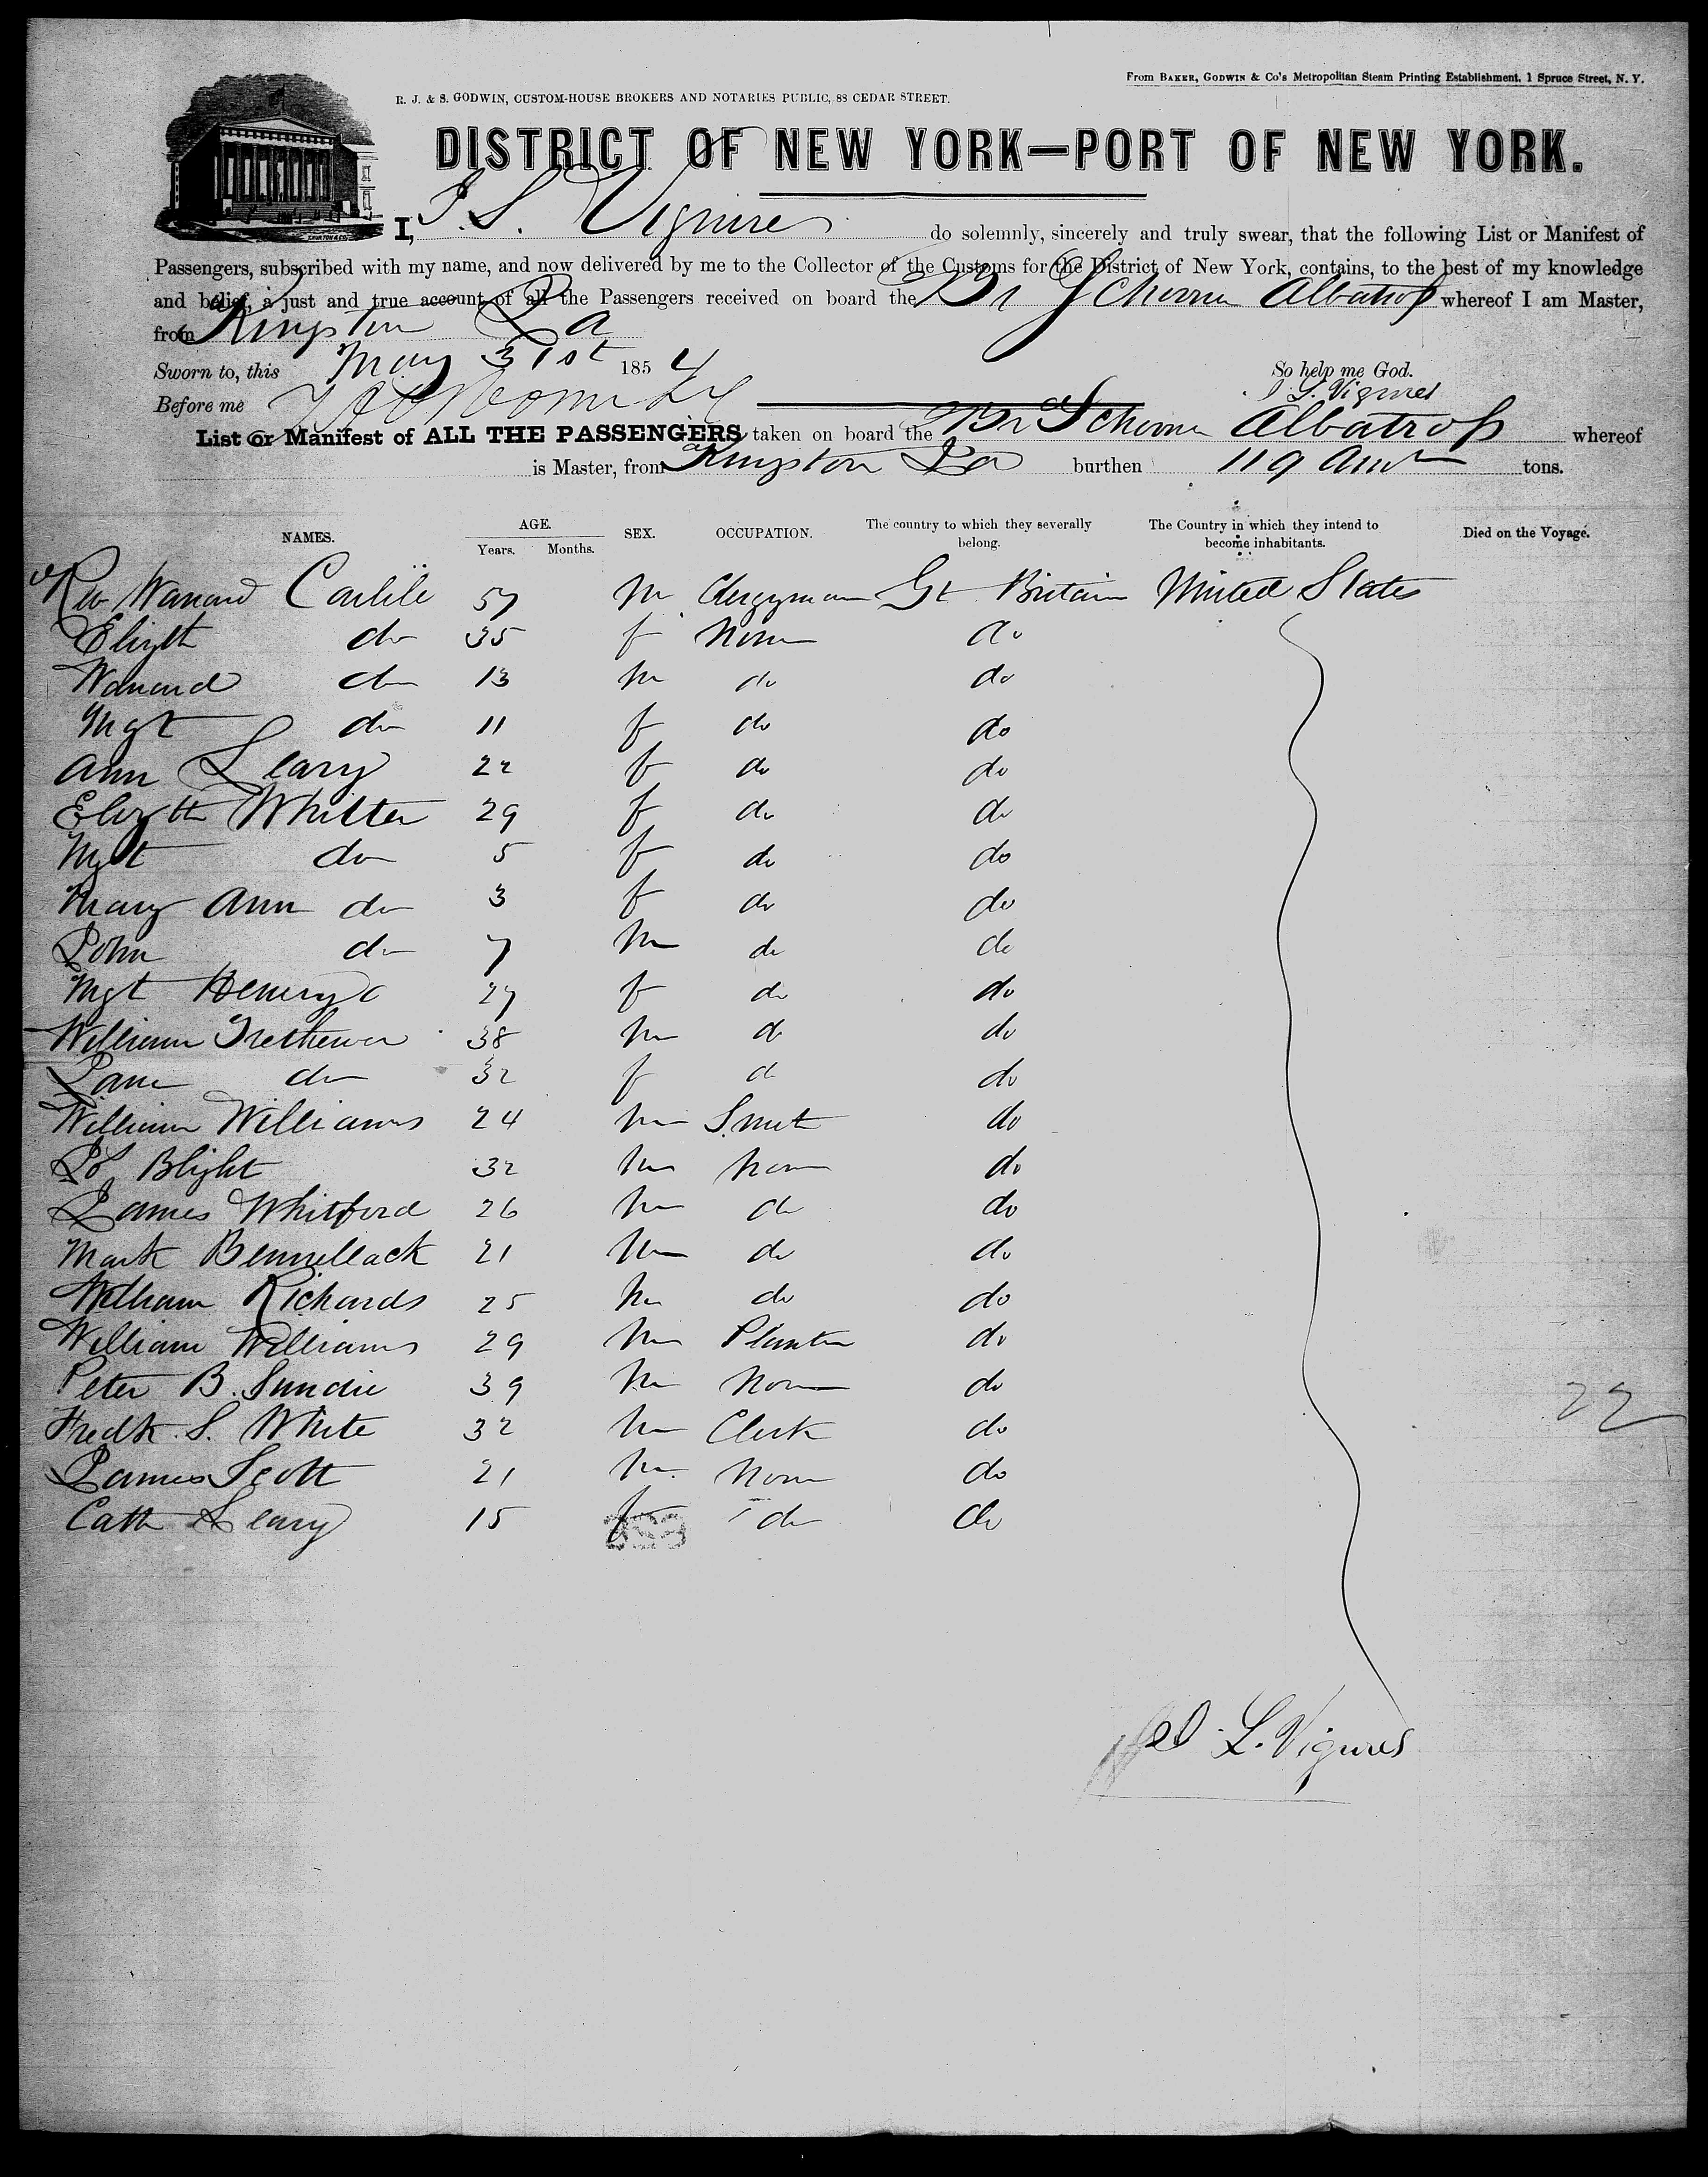 From BAKER, GODWIN & Co's Metropolitan Steam Printing Establishment, 1 Spruce Street, N. Y.
R. J. & S. GODWIN, CUSTOM-HOUSE BROKERS AND NOTARIES PUBLIC, 88 CEDAR STREET.
DISTRICT OF NEW YORK—PORT OF NEW YORK.
I, J. L. Vigures do solemnly, sincerely and truly swear, that the following List or Manifest of
Passengers, subscribed with my name, and now delivered by me to the Collector of the Customs for the District of New York, contains, to the best of my knowledge
and belief, a just and true account of all the Passengers received on board the Br Schooner Albatross whereof I am Master,
from Kingston Ja
Sworn to, this May 31st 1854 So help me God.
Before me J L. Vigures
List or Manifest of ALL THE PASSENGERS taken on board the Br Schooner Albatross whereof
is Master, from Kingston Ja burthen 119 tons.
NAMES. AGE. Years. Months. SEX. OCCUPATION. The country to which they severally belong. The Country in which they intend to become inhabitants. Died on the Voyage.
Rev Warrand Carlile 57 M Clergyman Gt Britain United States
Elizth do 35 f None do
Warrand do 13 M do do
Mgt do 11 f do do
Ann Leary 22 f do do
Elizth Whitter 29 f do do
Mgt do 5 f do do
Mary Ann do 3 f do do
John do 7 M do do
Mgt Henery 27 f do do
William Trethewer 38 M do do
Jane do 32 f do do
William Williams 24 M Smit do
Js Blight 32 M None do
James Whitford 26 M do do
Mark Bennellack 21 M do do
William Richards 25 M do do
William Williams 29 M Planter do
Peter B. Sundie 39 M None do
22
Fredk. S. White 32 M Clerk do
James Scott 21 M None do
Cath Leary 15 f do do
L. Vigures